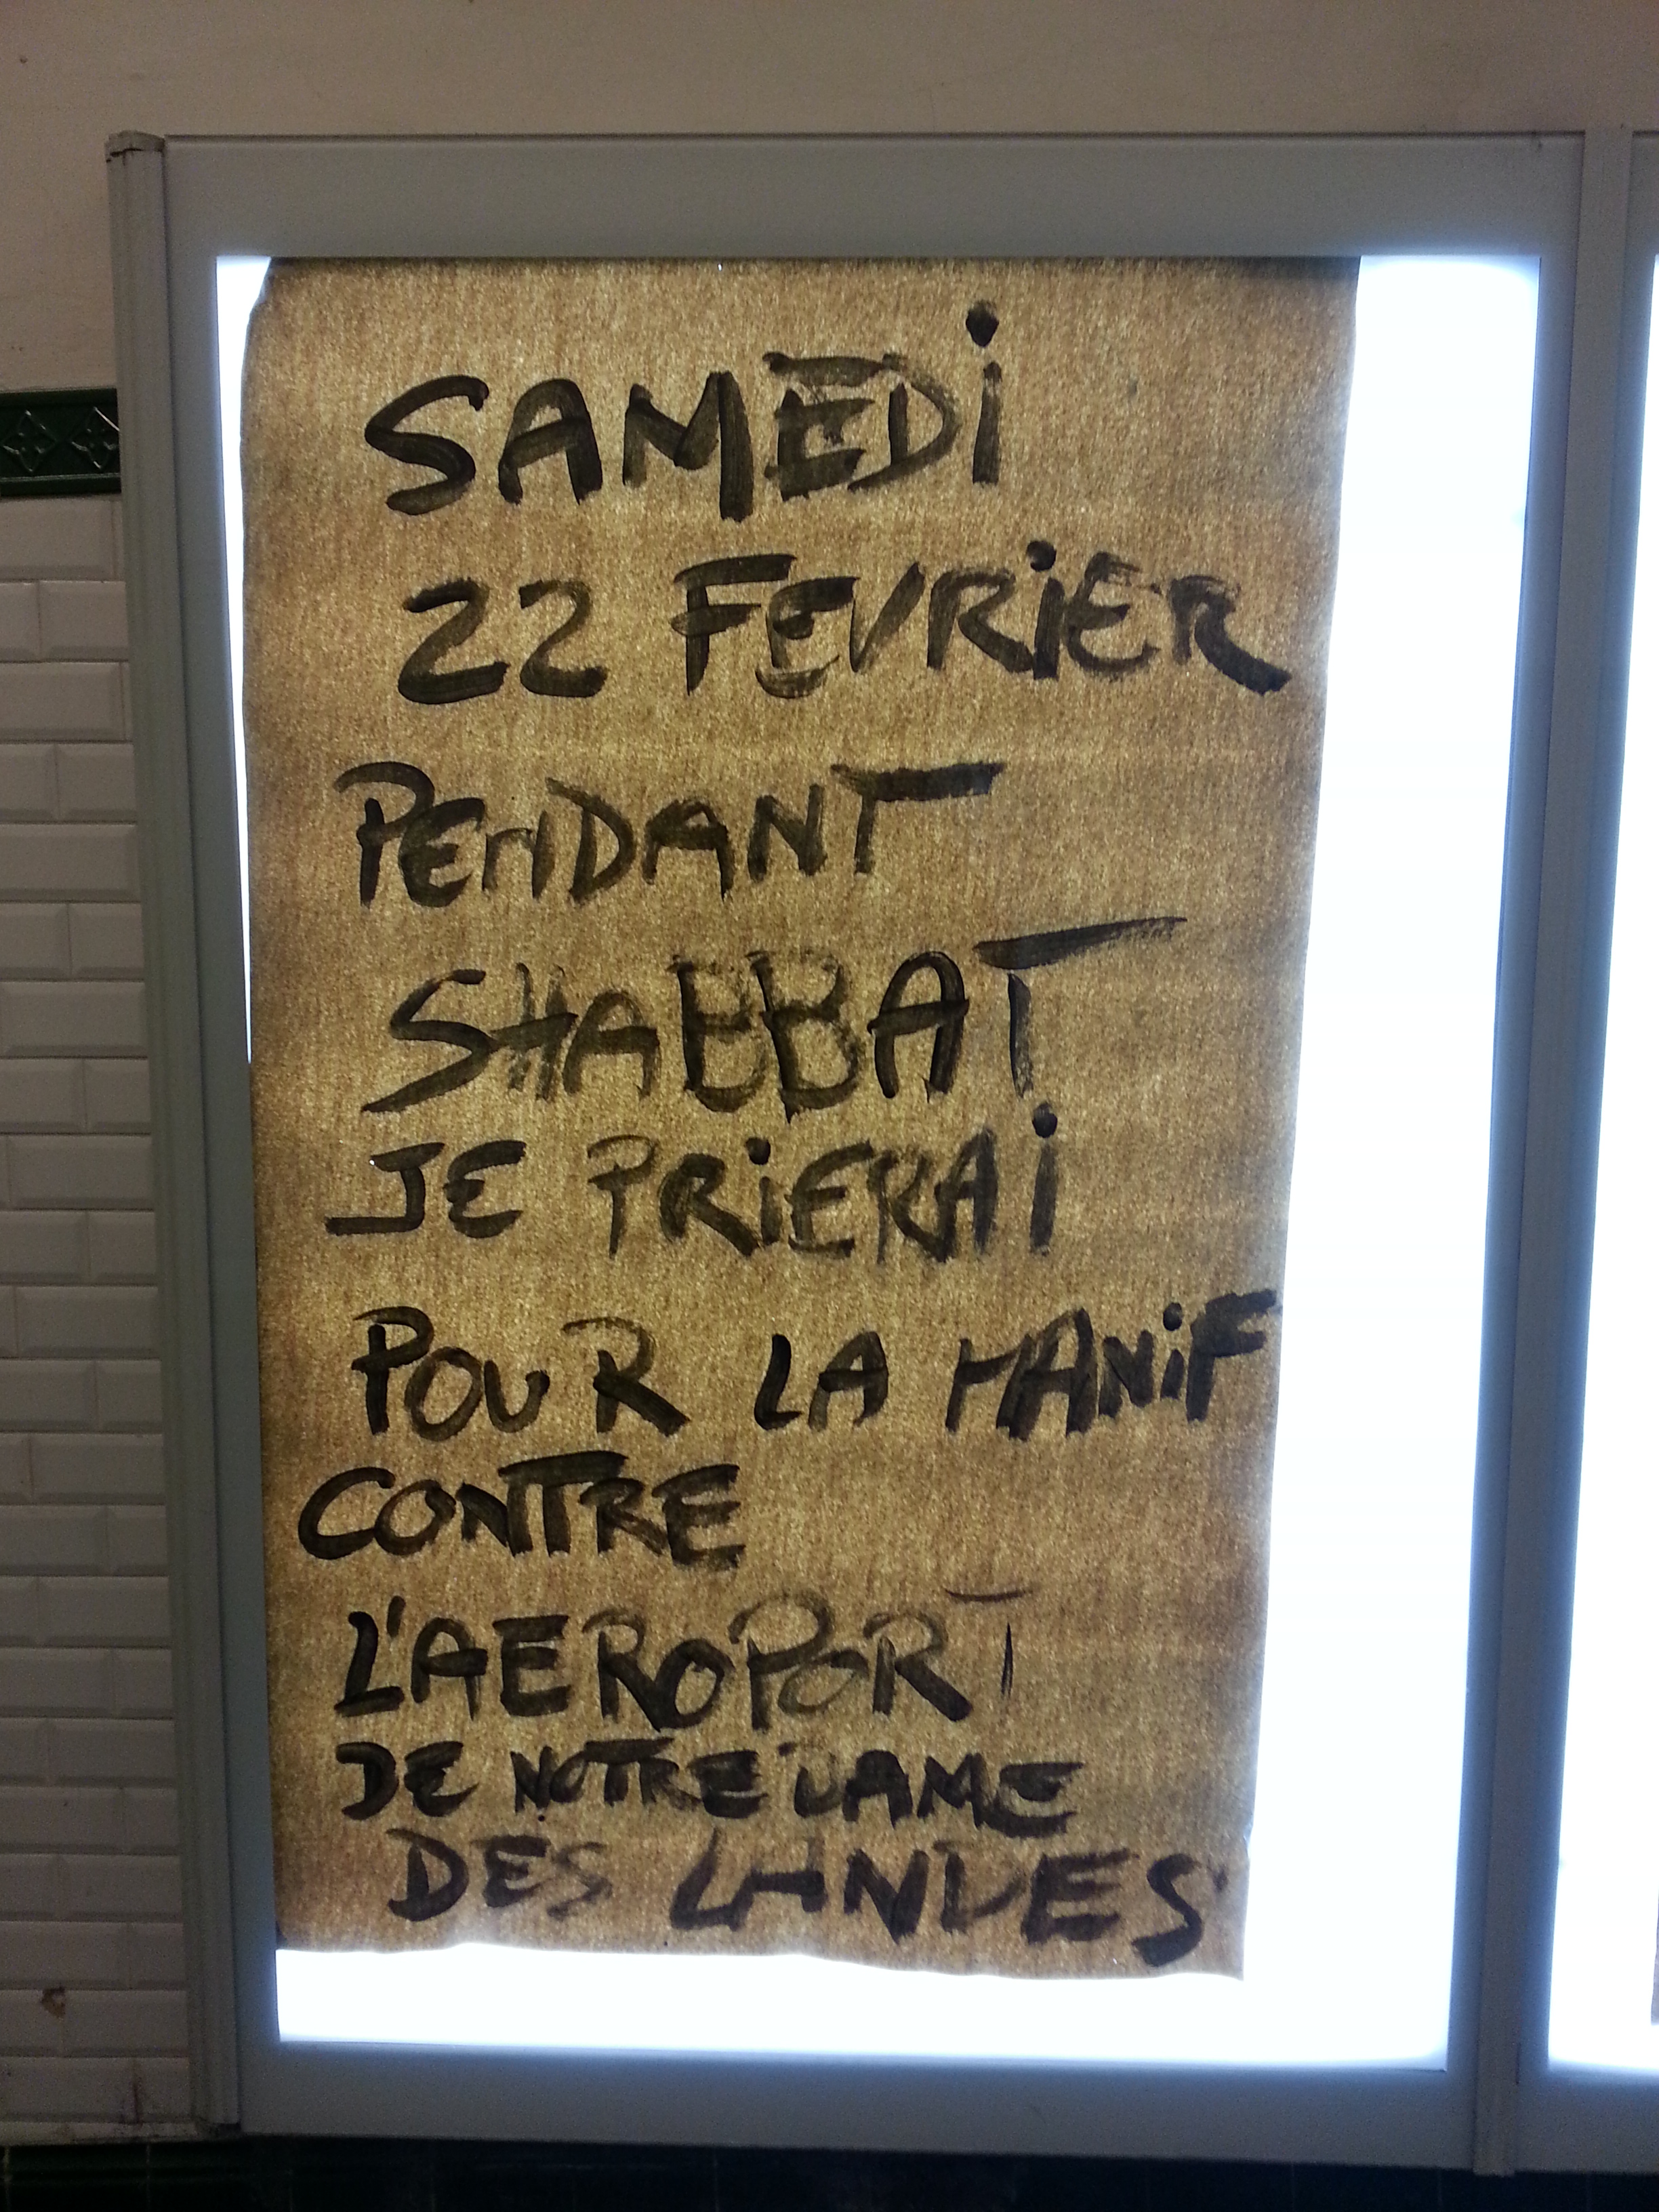 SAMEDi
22 FEVRiER
PENDANT
SHABBAT
JE PRiERAi
POUR LA MANiF
CONTRE
L'AEROPORT
DE NOTRE DAME
DES LANDES